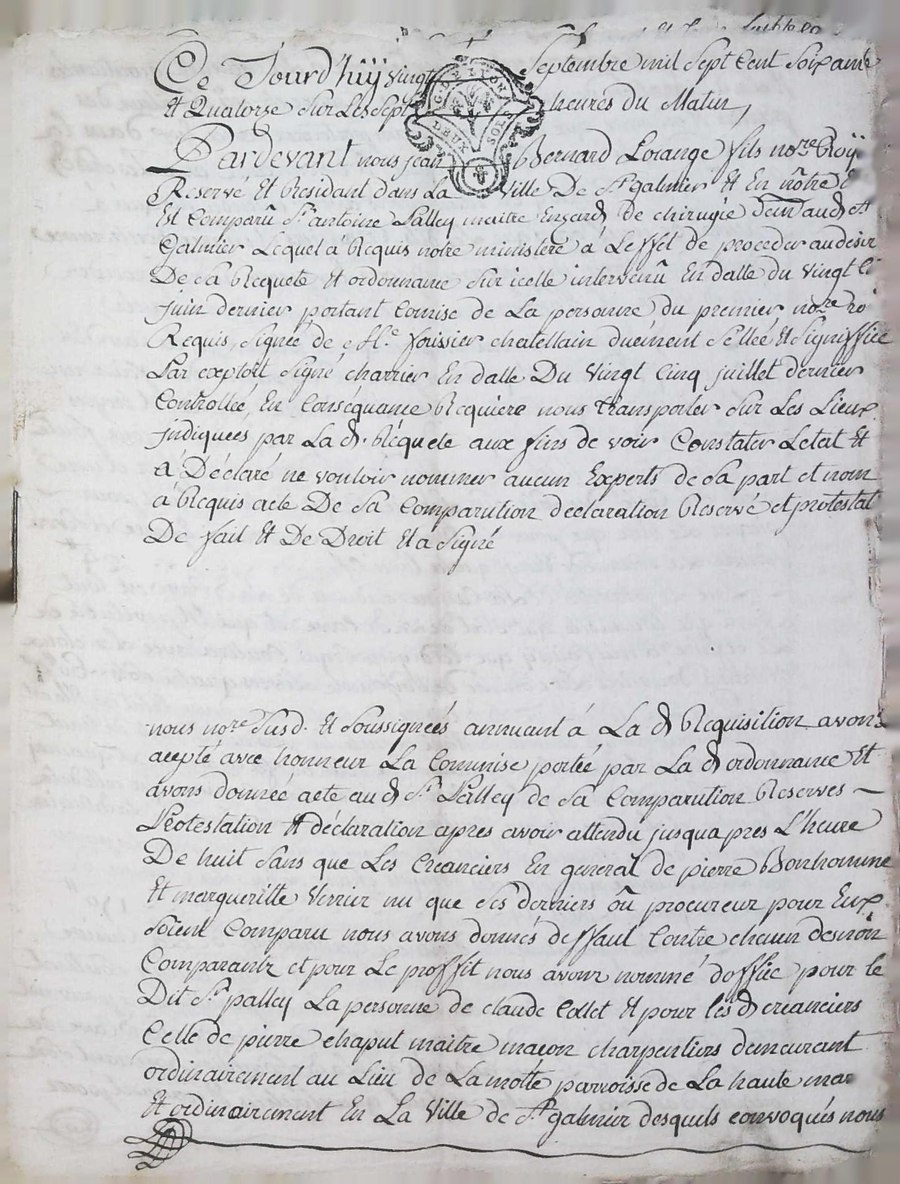 Ce Jourd'huÿ vingt Septembre mil Sept Cent Soixante
Et Quatorze Sur Les Sept heures du Matin,
G. DE LYON
DEUX SOLS
Pardevant nous jean Bernard Lorange fils no.re Roÿ
Reservé Et Residant dans La Ville De St galmier Et En nôtre
Est Comparû Sr antoine Palley maitre En de chirugie audt St
Galmier Lequel à Requis notre ministere à L'effet de proceder au desir
De Sa Requete Et ordonnance Sur icelle intervenû En datte du Vingt
juin dernier portant Comise de La personne du premier no.re
Requis, Signée de Me. foissier chatellain duëment Scellée Et Signiffiée
Par exploit Signé charrier En datte Du Vingt Cinq juillet dernier
Controllée, En Conséquance Requiere nous transporter Sur Les Lieux
jndiquées par La d. Réquete aux fins de voir Constater Letat Et
à Déclaré ne vouloir nommer aucun Experts de Sa part et nom
à Requis acte De Sa Comparution declaration Reservé et protestat
De fait Et De Droit Et a Signé
nous no.re Susd. Et Soussignées annuant à La d. Requisition avons
acepté avec honneur La Commise portée par La d. ordonnance Et
avons donnée acte au d. Sr. Palley de Sa Comparution Reserves
Protestation Et déclaration apres avoir attendu jusqua pres L'heure
De huit Sans que Les Creanciers En general de pierre Bonhomme
Et margueritte Verrier nu que ces derniers oû procureur pour Eux
Soient Comparu nous avons donnés deffaut Contre chacun desnon
Comparants et pour Le proffit nous avons nommé doffice pour le
Dit Sr. palley La personne de claude Collet Et pour les d. creanciers
Celle de pierre chaput maitre maçon charpentiers demeurant
ordinairement au Lieu de La motte parroisse de La haute
Et ordinairement En La Ville de St galmier desquels convoqués nous